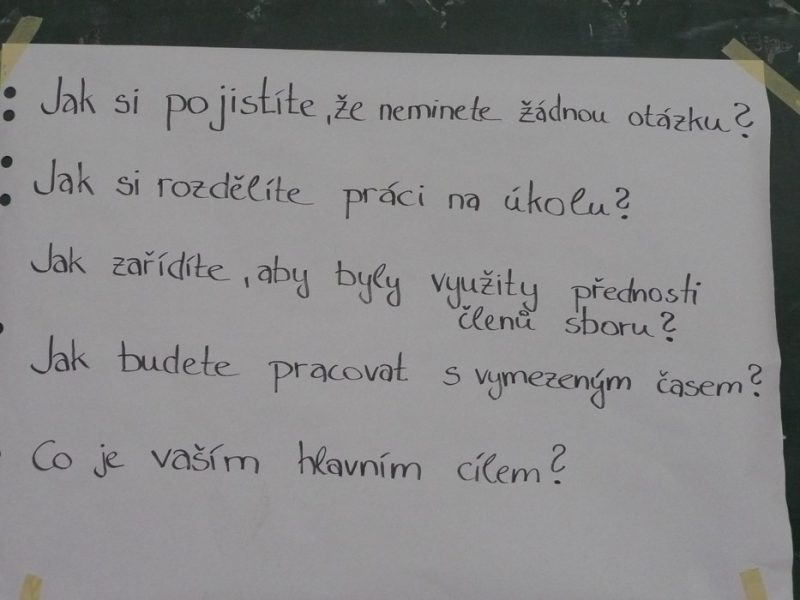 Jak si pojistíte, že neminete žádnou otázku?
Jak si rozdělíte práci na úkolu?
Jak zařídíte, aby byly využity přednosti
členů sboru?
Jak budete pracovat s vymezeným časem?
Co je vaším hlavním cílem?